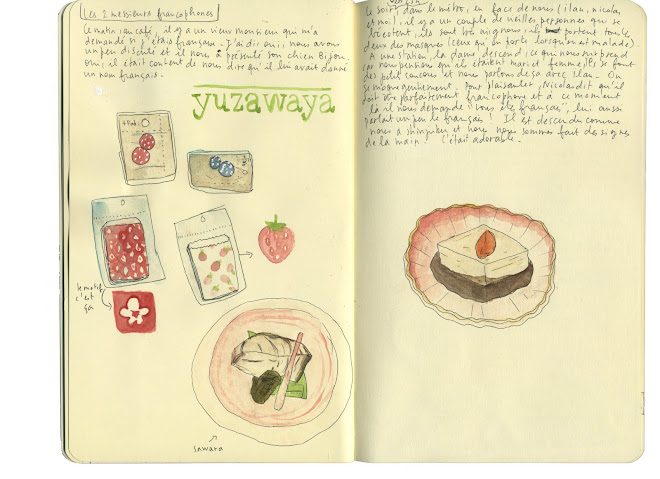 Les 2 messieurs francophones
Ce matin, au café, il y a un vieux monsieur qui m'a
demandé si j'étais français. J'ai dit oui, nous avons
un peu discuté et il nous a présenté son chien Bijou.
oui, il était content de nous dire qu'il lui avait donné
un nom français.
yuzawaya
le motif
c'est
ça
sawara
Le soir, dans le métro, en face de nous (ilan, nicolas
et moi), il y a un couple de vieilles personnes qui se
bécotent, ils sont très mignons, ils portent tous les
deux des masques (ceux qu'on porte lorsqu'on est malade).
A une station, la dame descend, ce qui nous surprend
car nous pensions qu'ils étaient mari et femme, ils se font
des petits coucous et nous parlons de ça avec ilan. On
se moque gentiment. Pour plaisanter, Nicolas dit qu'il
doit être parfaitement francophone et à ce moment
là il nous demande "vous êtes français", lui aussi
parlant un peu le français ! Il est descendu comme
nous à shinjuku et nous nous sommes fait des signes
de la main. C'était adorable.